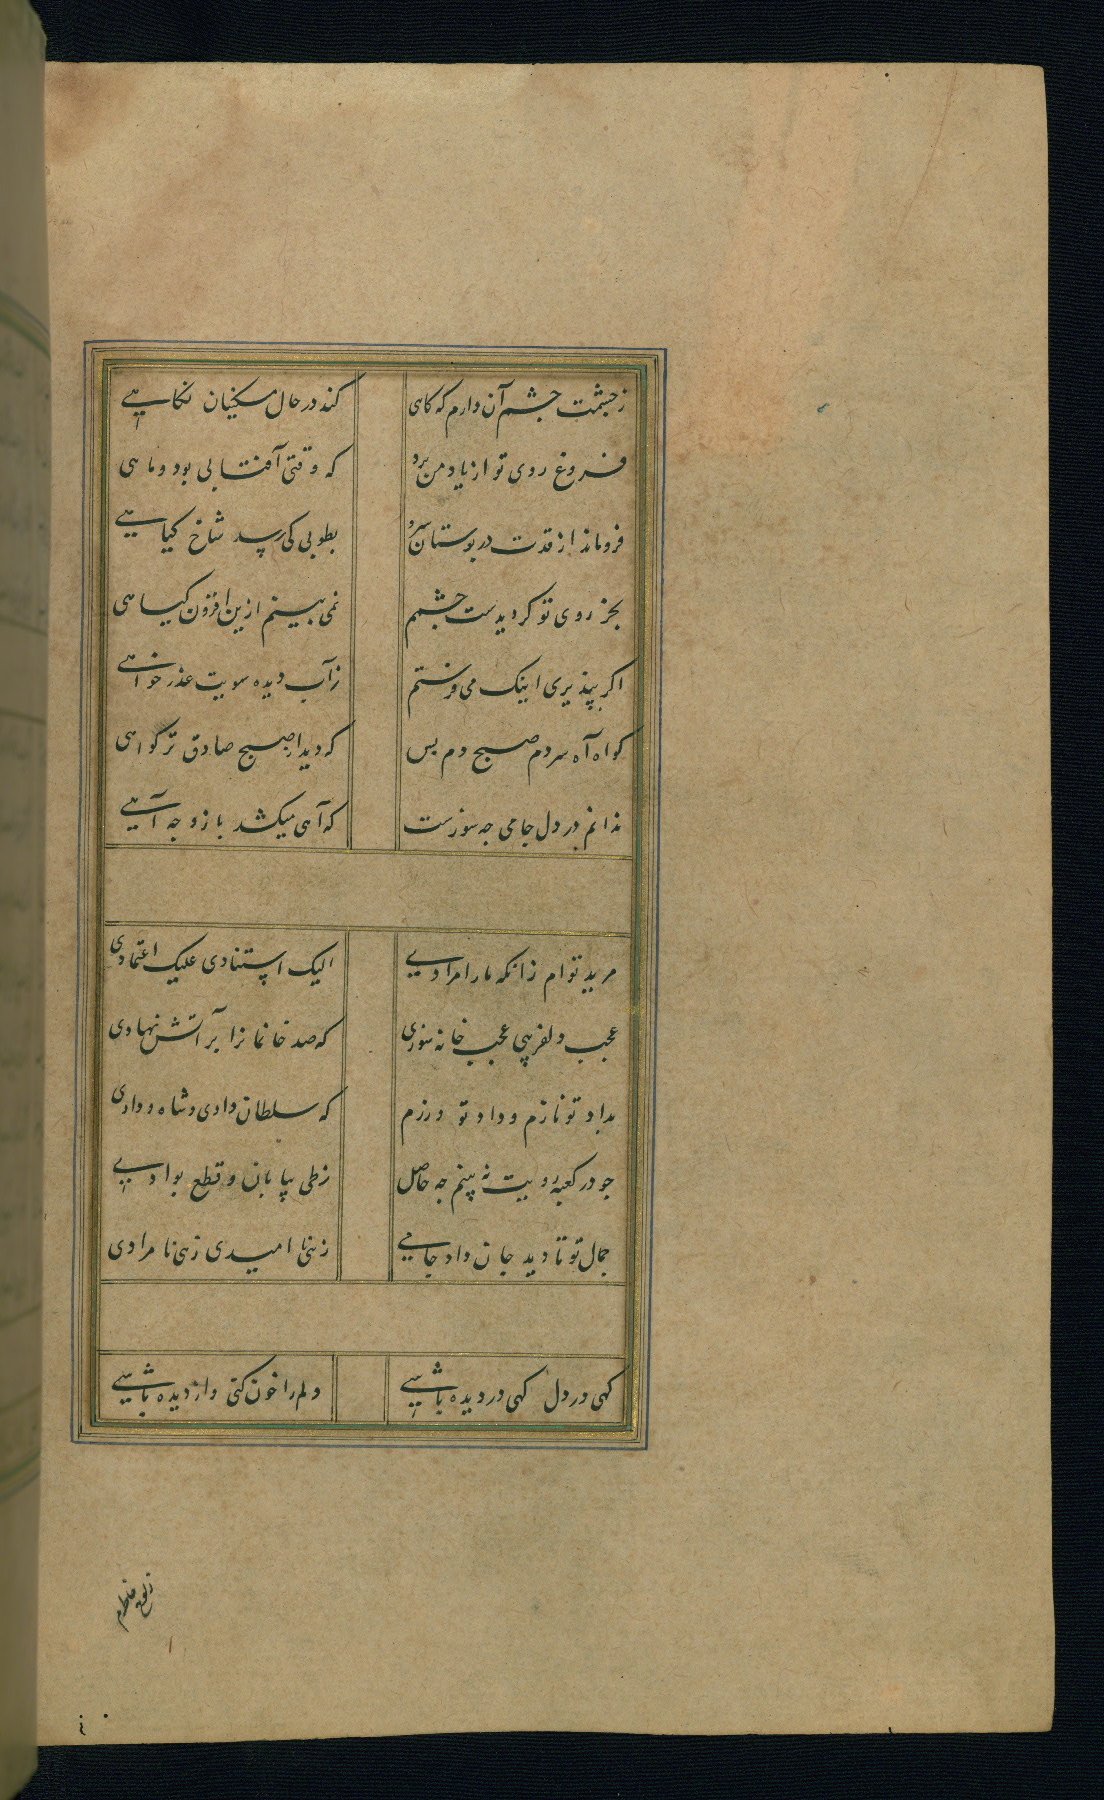 زچشمت چشم آن دارم که کاهی کند در حال مسکینان نکاهی
فروغ روی تو از یاد من برد که وقتی آفتابی بود و ماهی
فروماند از قدت در بوستان سرو بطوبی کی رسد شاخ کیاهی
بجز روی تو کر دیدست چشمم نمی بینم ازین افزون کناهی
اکر بپذیری اینک می فرستم زآب دیده سویت عذر خواهی
کواه آه سردم صبح دم بس که دید از صبح صادق تر کواهی
ندانم در دل جامی چه سوزست که آهی میکشد باز و چه آهی
مرید توام زانکه ما را مرادی الیک استنادی علیک اعتمادی
عجب دلفریبی عجب خانه سوزی که صد خانمانرا بر آتش نهادی
بداد تو نازم وداد تو ورزم که سلطان دادی و شاه ودادی
چو در کعبه رویت نه بینم چه حاصل زطی بیابان و قطع بوادی
جمال تو نادید جان داد جامی زهی نا امیدی زهی نا مرادی
کهی در دل کهی در دیده باشی دلم را خون کنی واز دیده پاشی